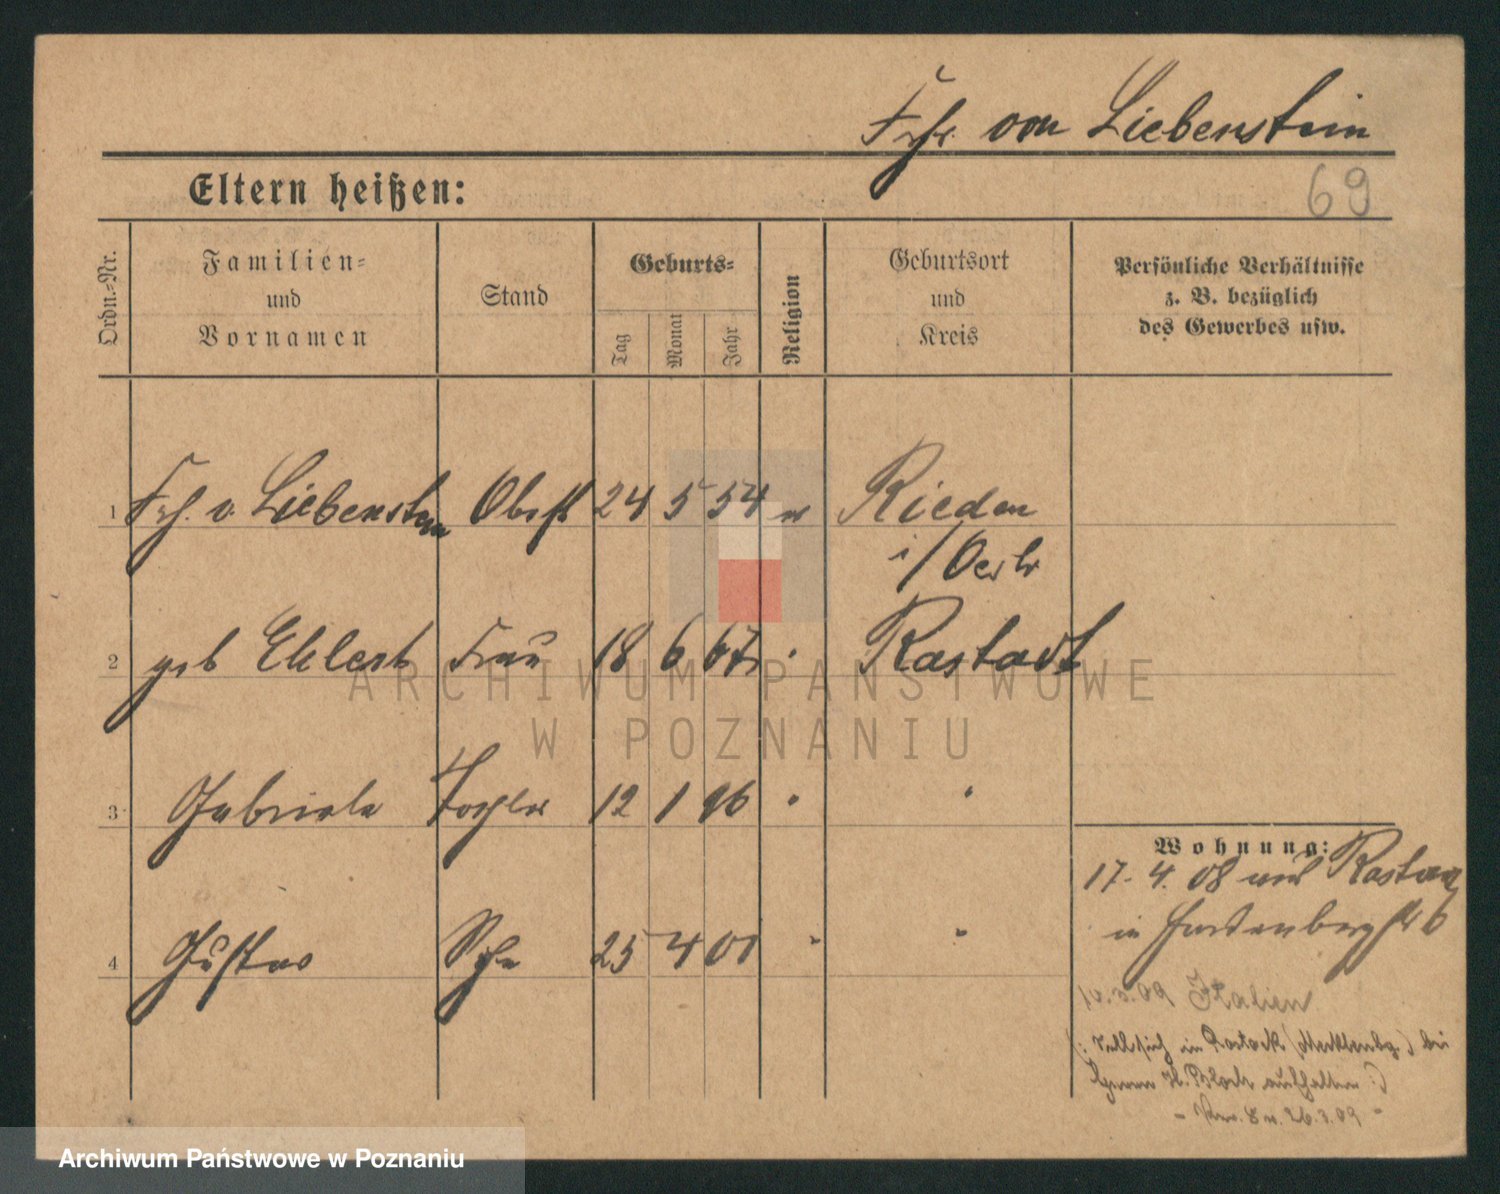 Frhr. von Liebenstein
Eltern heißen:
69
Ordn.-Nr.
Familien-
und
Vornamen
Stand
Geburts-
Tag
Monat
Jahr
Religion
Geburtsort
und
Kreis
Persönliche Verhältnisse
z. B. bezüglich
des Gewerbes usw.
1 Frh. v. Liebenstein Oberst 24 5 54 Rieden
2 geb Ehlert Frau 18 6 67 Rastadt
3 Gabriele Tochter 12 1 96 "
4 Gustav 25 4 01 " "
Wohnung:
17. 4. 08 Rastang
in Hardenbergstr 6
10.3.09 Italien
: soll sich in Rostock (Mecklenbg.) bei
Herrn H. Block aufhalten :)
26.3.09 -
ARCHIWUM PAŃSTWOWE
W POZNANIU
Archiwum Państwowe w Poznaniu